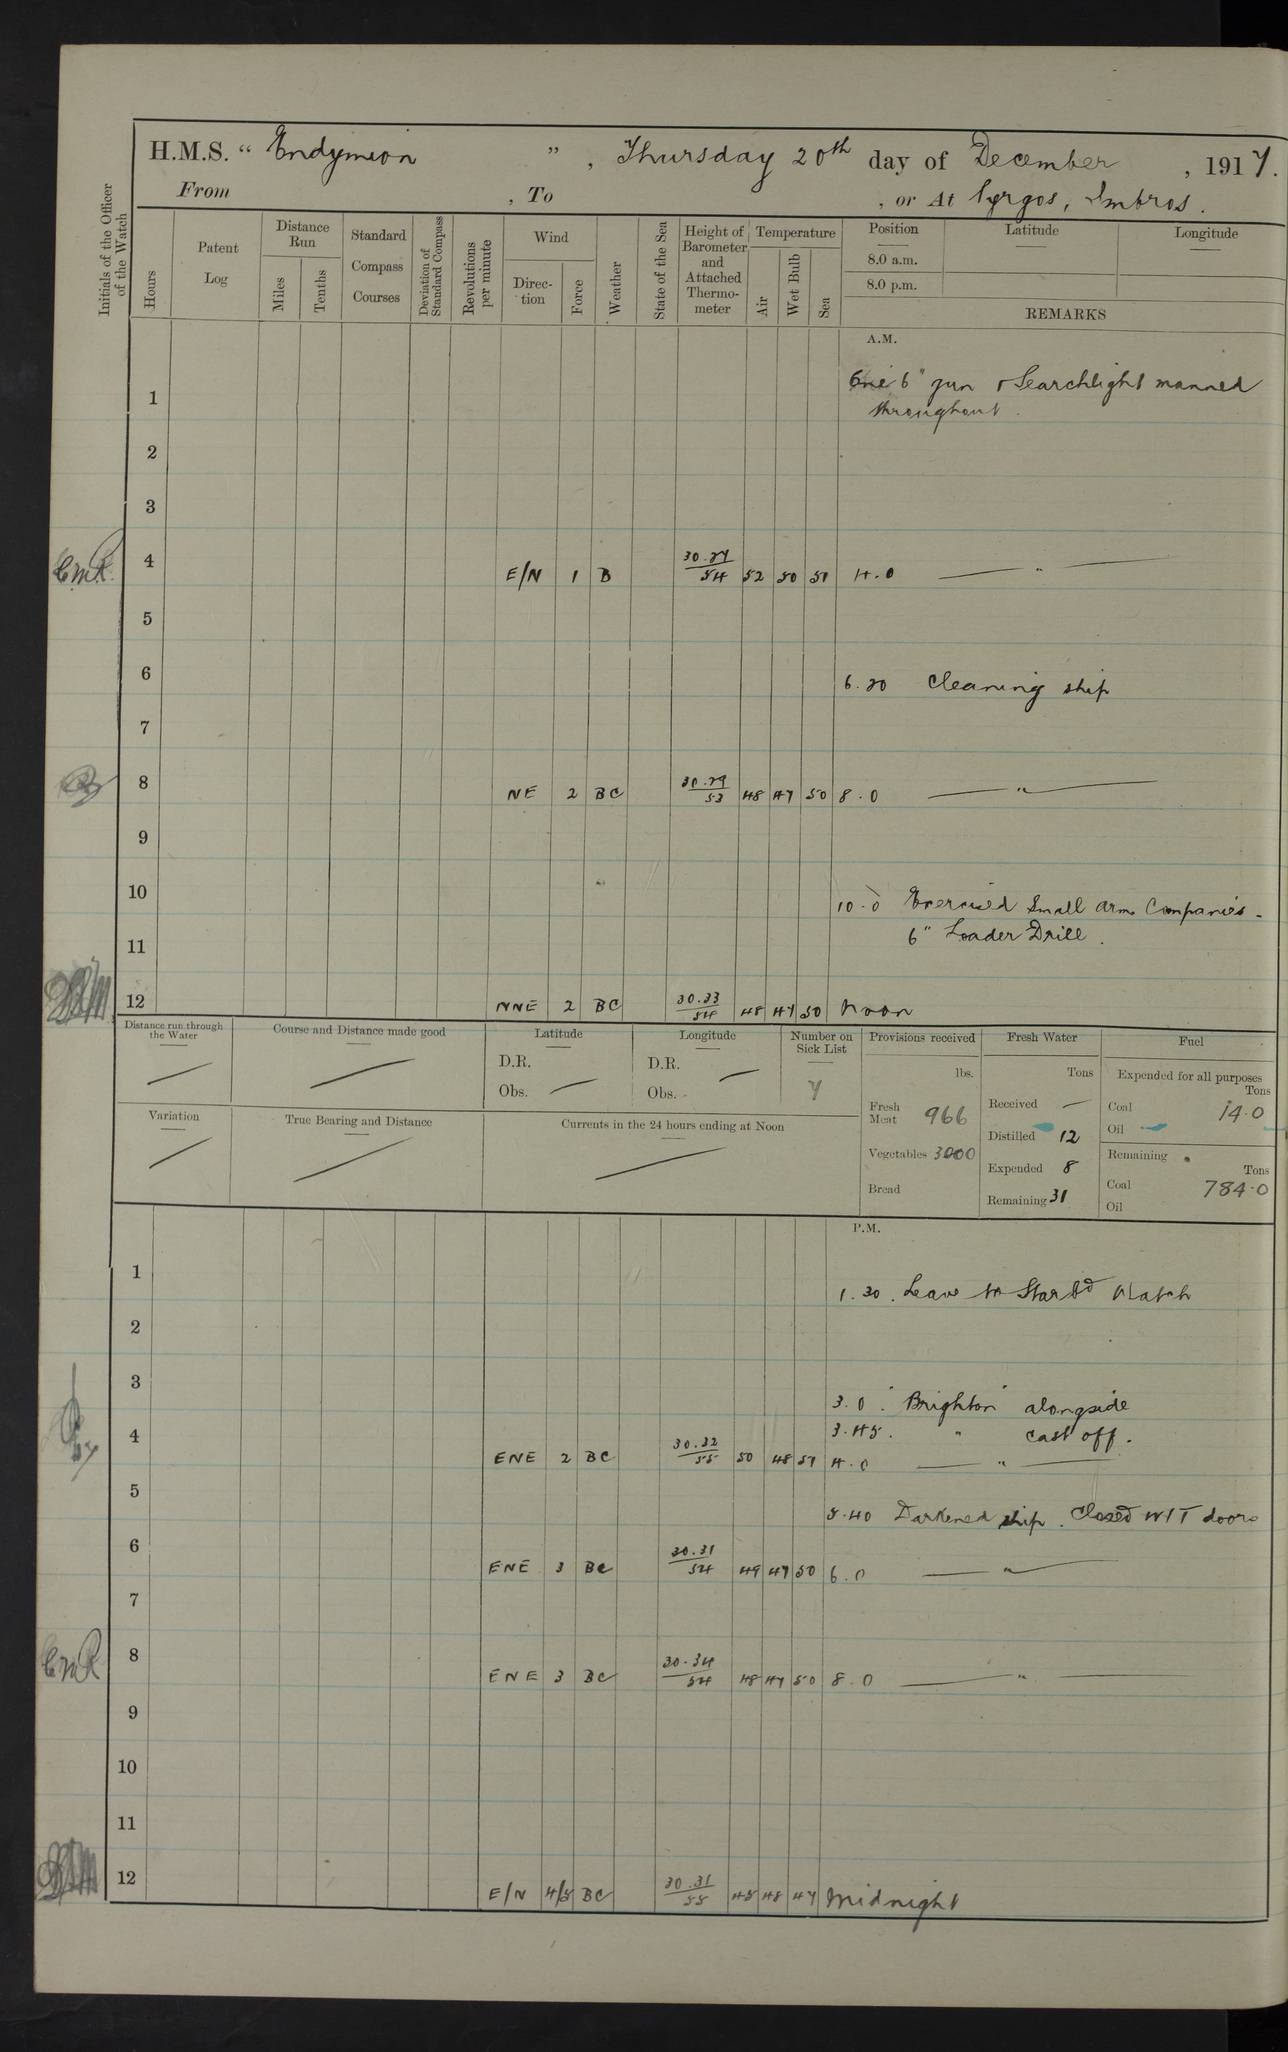 H.M.S. " Endymion ", Thursday 20th day of December, 1917.
From , To , or At Pyrgos, Imbros.
Initials of the Officer of the Watch
Hours
Patent Log
Distance Run
Miles
Tenths
Standard Compass Courses
Deviation of Standard Compass
Revolutions per minute
Wind
Direction
Force
Weather
State of the Sea
Height of Barometer and Attached Thermometer
Temperature
Air
Wet Bulb
Sea
Position
8.0 a.m.
8.0 p.m.
Latitude
Longitude
REMARKS
A.M.
1 One 6" gun & Searchlight manned
throughout.
2
3
CMR. 4 E/N 1 B 30.27/54 52 50 51 4.0 — " —
5
6 6.20 Cleaning ship
7
8 NE 2 BC 30.29/53 48 47 50 8.0 — " —
9
10 10.0 Exercised Small Arm Companies -
6" Loader Drill.
11
12 NNE 2 BC 30.33/54 48 47 50 Noon
Distance run through the Water
Course and Distance made good
Latitude
D.R.
Obs. —
Longitude
D.R.
Obs. —
Number on Sick List
7
Provisions received
lbs.
Fresh Meat 966
Vegetables 3000
Bread
Fresh Water
Tons
Received —
Distilled 12
Expended 8
Remaining 31
Fuel
Expended for all purposes
Tons
Coal 14.0
Oil —
Remaining
Tons
Coal 784.0
Oil
Variation
True Bearing and Distance
Currents in the 24 hours ending at Noon
P.M.
1 1.30. Leave to Starbd Watch
2
3 3.0. "Brighton" alongside
3.45. " cast off.
4 ENE 2 BC 30.32/55 50 48 51 4.0 — " —
5 5.40 Darkened ship. Closed W/T doors
6 ENE 3 BC 30.31/54 49 47 50 6.0 — " —
7
CMR 8 ENE 3 BC 30.34/54 48 47 50 8.0 — " —
9
10
11
12 E/N 4/5 BC 30.31/55 48 47 Midnight